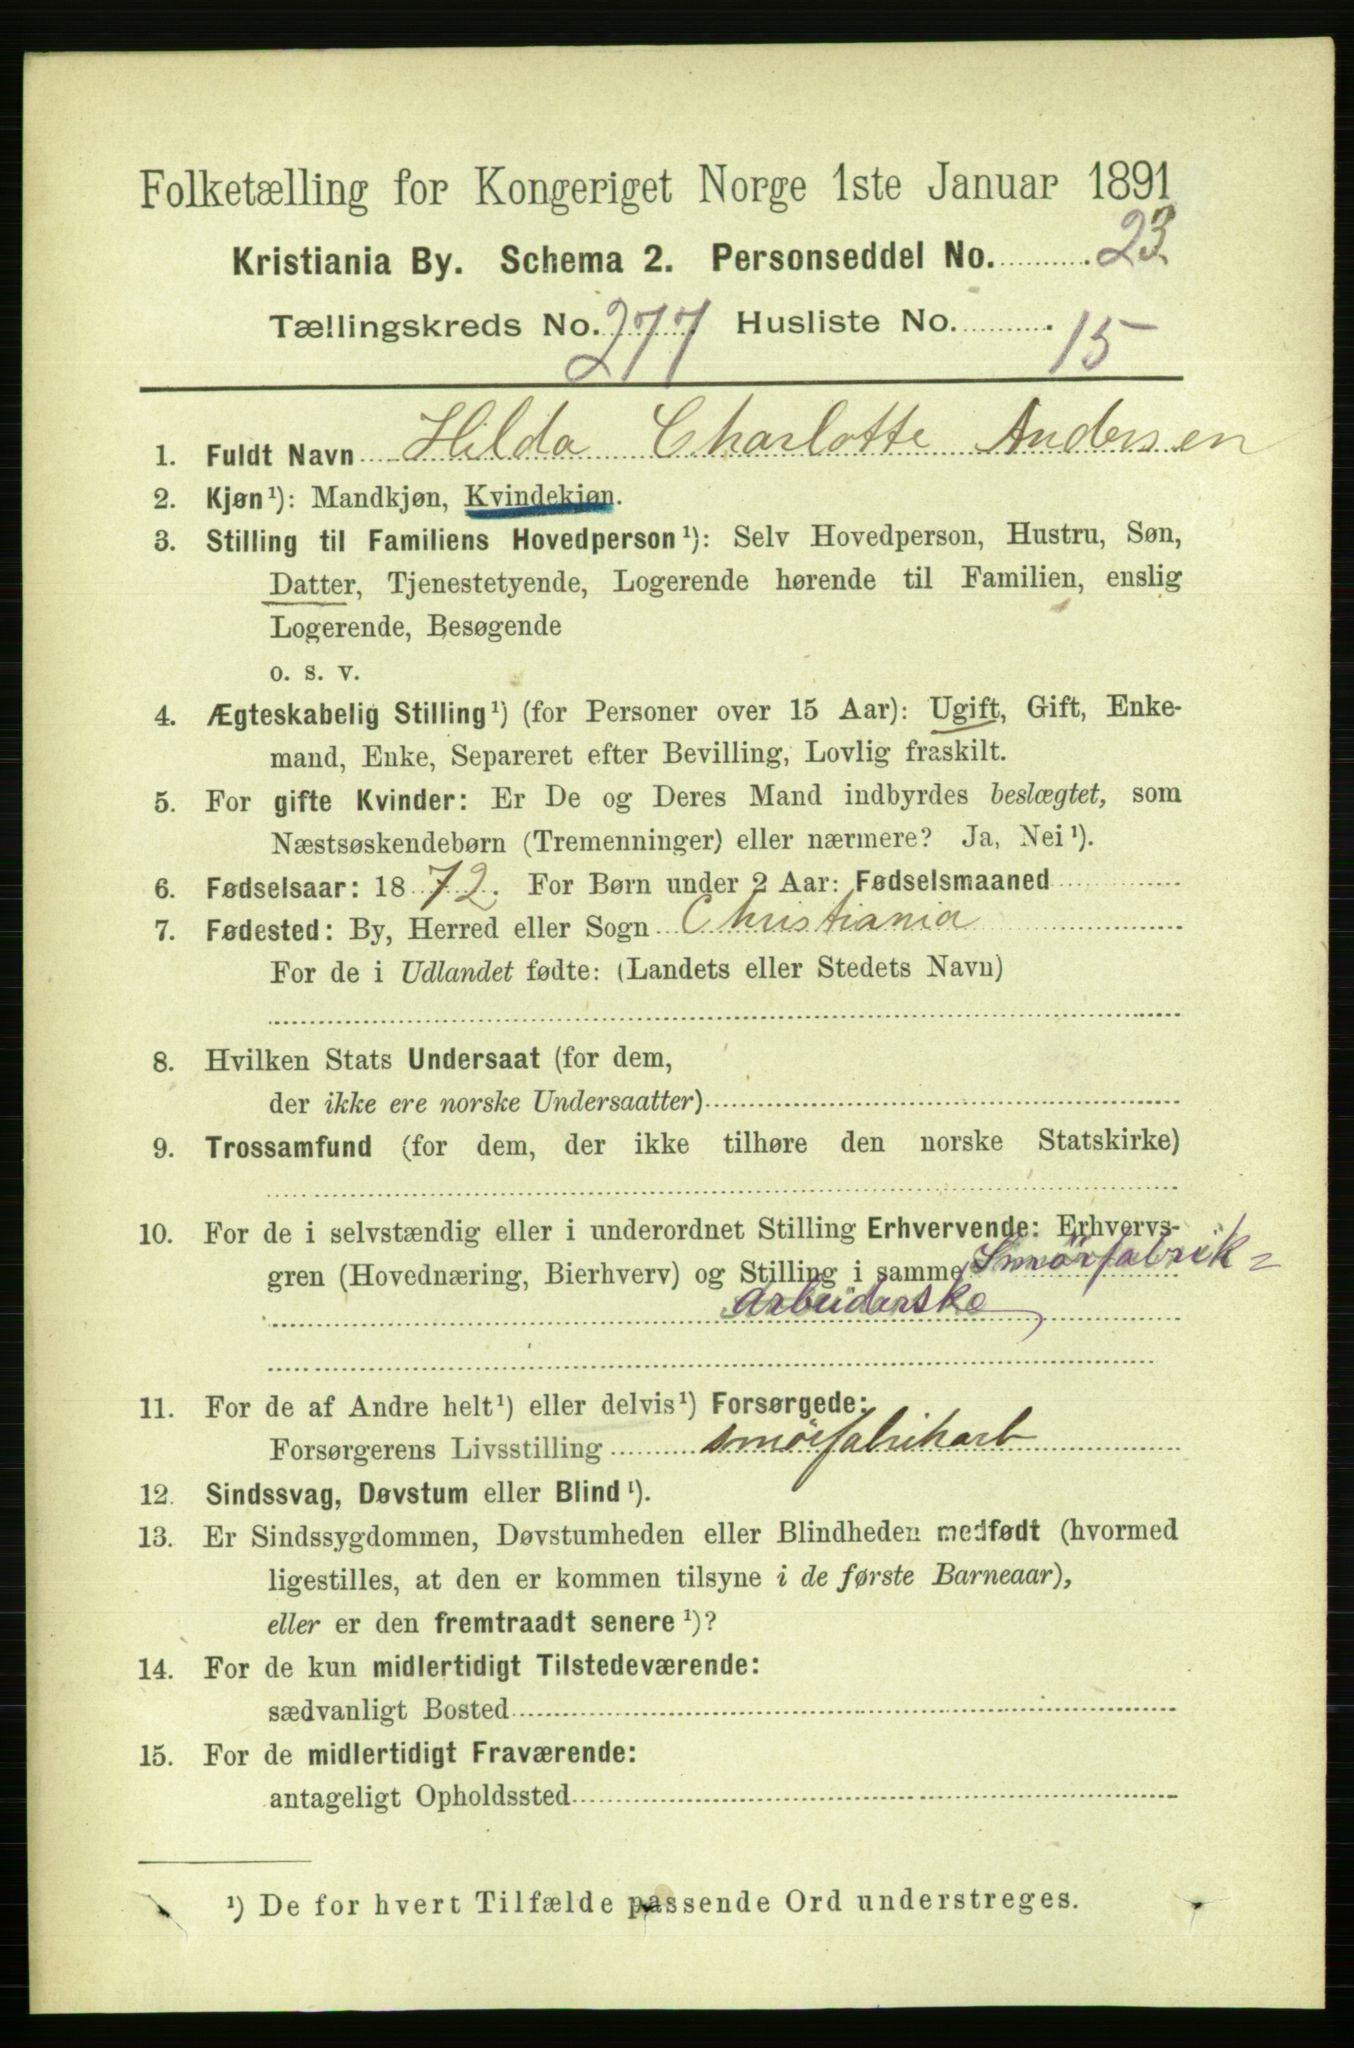 Folketælling for Kongeriget Norge 1ste Januar 1891
Kristiania By. Schema 2. Personseddel No. 23
Tællingskreds No. 277 Husliste No. 15
1. Fuldt Navn Hilda Charlotte Andersen
2. Kjøn¹): Mandkjøn, Kvindekjøn.
3. Stilling til Familiens Hovedperson¹): Selv Hovedperson, Hustru, Søn,
Datter, Tjenestetyende, Logerende hørende til Familien, enslig
Logerende, Besøgende
o. s. v.
4. Ægteskabelig Stilling¹) (for Personer over 15 Aar): Ugift, Gift, Enke-
mand, Enke, Separeret efter Bevilling, Lovlig fraskilt.
5. For gifte Kvinder: Er De og Deres Mand indbyrdes beslægtet, som
Næstsøskendebørn (Tremenninger) eller nærmere? Ja, Nei¹).
6. Fødselsaar: 1872. For Børn under 2 Aar: Fødselsmaaned
7. Fødested: By, Herred eller Sogn Christiania
For de i Udlandet fødte: (Landets eller Stedets Navn)
8. Hvilken Stats Undersaat (for dem,
der ikke ere norske Undersaatter)
9. Trossamfund (for dem, der ikke tilhøre den norske Statskirke)
10. For de i selvstændig eller i underordnet Stilling Erhvervende: Erhvervs-
gren (Hovednæring, Bierhverv) og Stilling i samme Smörfabrik=
arbeiderske
11. For de af Andre helt¹) eller delvis¹) Forsørgede:
Forsørgerens Livsstilling smörfabrikarb
12. Sindssvag, Døvstum eller Blind¹).
13. Er Sindssygdommen, Døvstumheden eller Blindheden medfødt (hvormed
ligestilles, at den er kommen tilsyne i de første Barneaar),
eller er den fremtraadt senere¹)?
14. For de kun midlertidigt Tilstedeværende:
sædvanligt Bosted
15. For de midlertidigt Fraværende:
antageligt Opholdssted
¹) De for hvert Tilfælde passende Ord understreges.